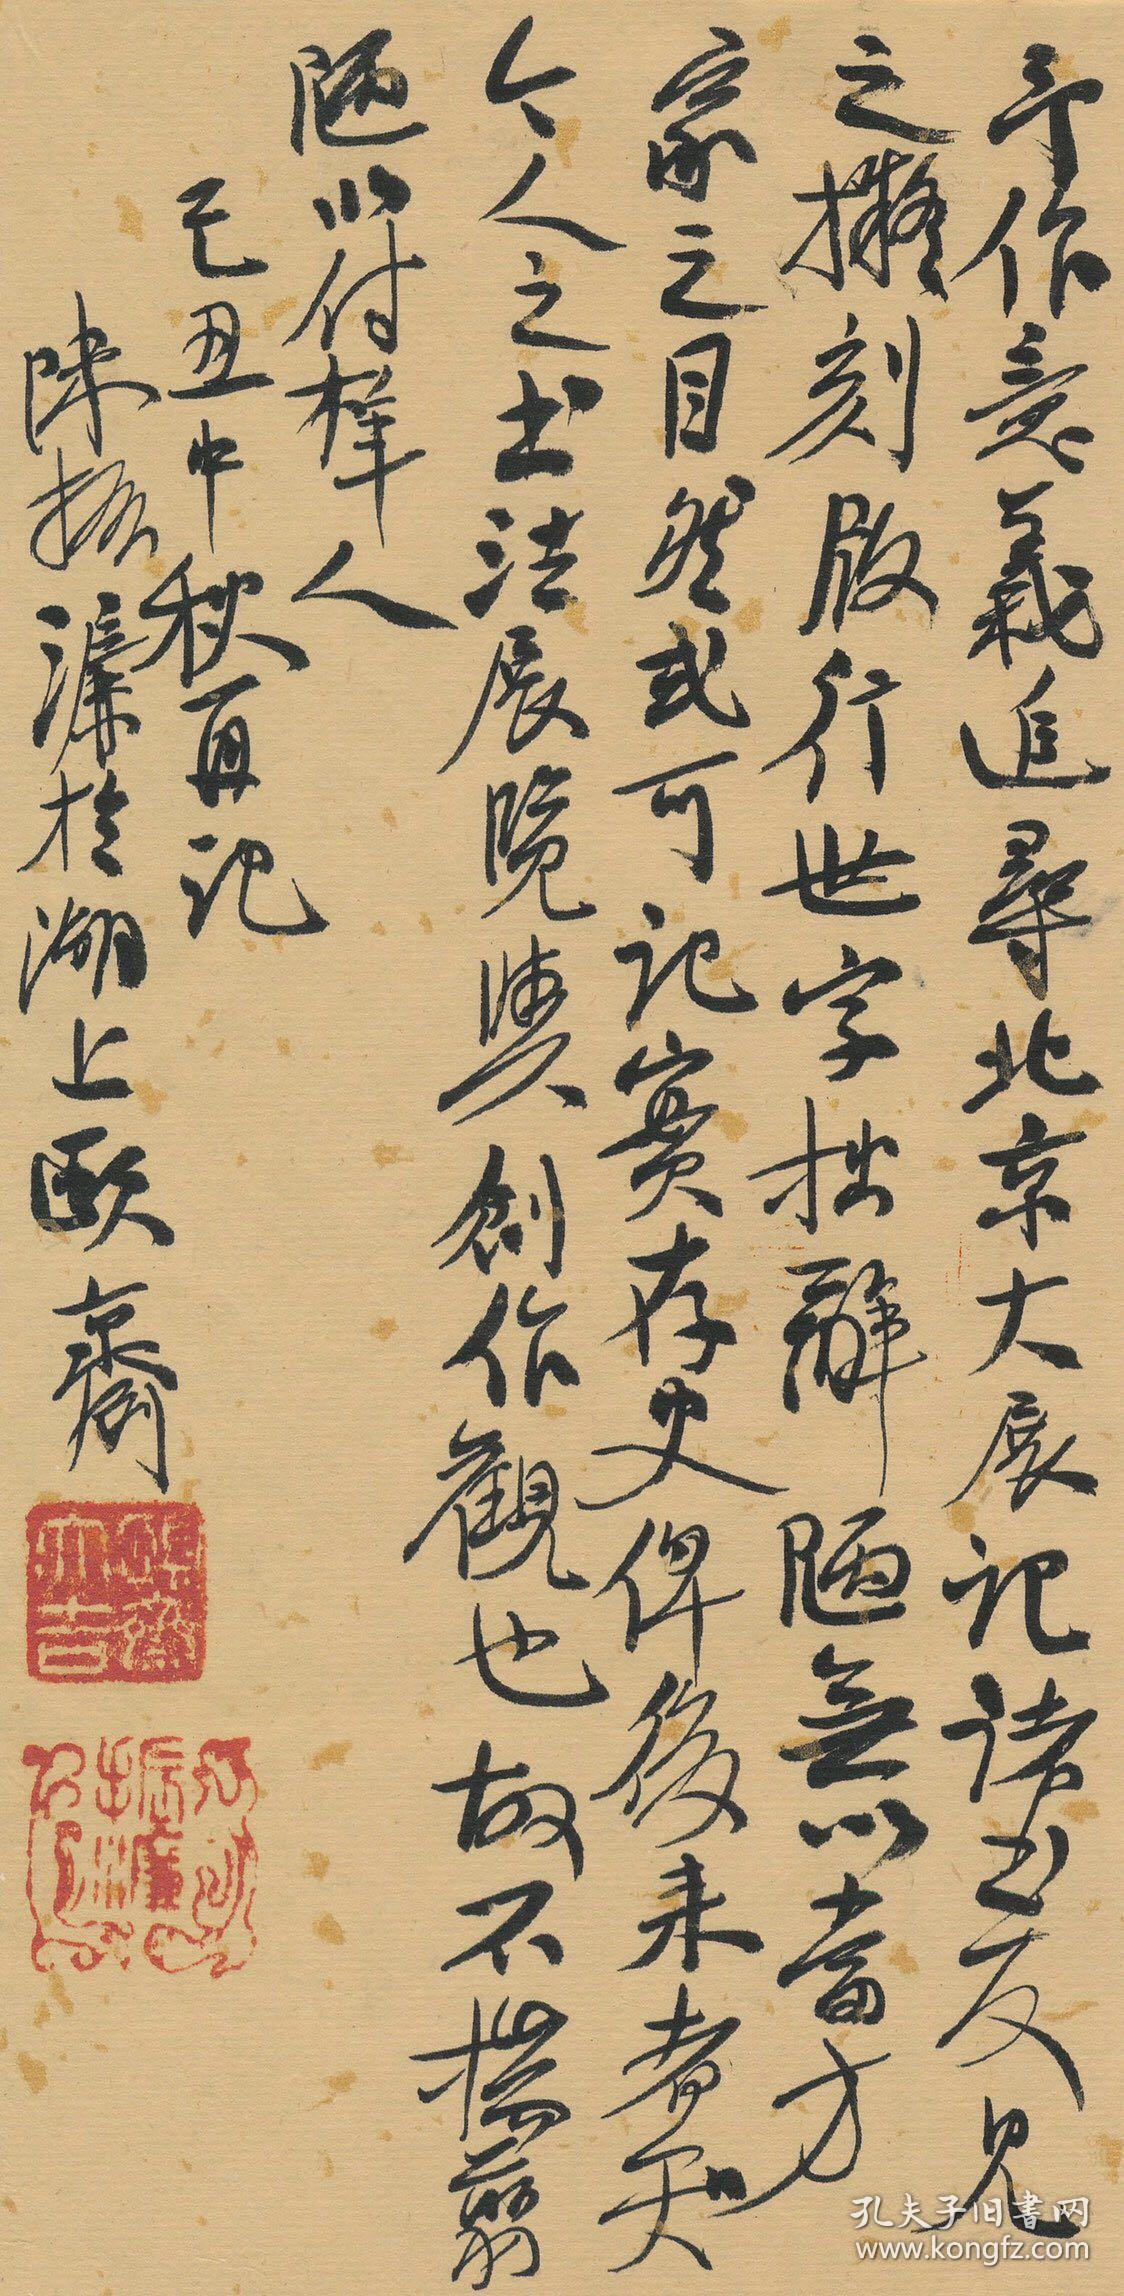 予作意義追尋北京大展記諸書友見
之擬刻版行世字拙辭陋無以當方
家之目然或可記實存史俾後来者知
今人之书法展覽與創作觀也故不揣翦
陋以付梓人
己丑中秋再记
陳振濂於湖上頤齋
孔夫子旧書网
www.kongfz.com